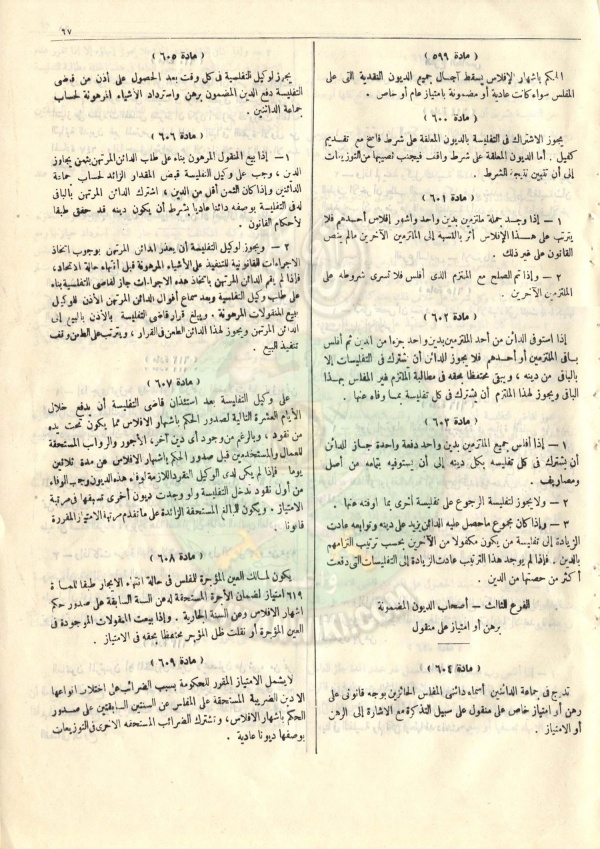 ٦٧
( مادة ٥٩٩ )
الحكم باشهار الإفلاس يسقط آجال جميع الديون النقدية التى على
المفلس سواء كانت عادية أو مضمونة بامتياز عام أو خاص .
( مادة ٦٠٠ )
يجوز الاشتراك فى التفليسة بالديون المعلقة على شرط فاسخ مع تقديم
كفيل . أما الديون المعلقة على شرط واقف فيجنب نصيبها من التوزيعات
إلى أن تتبين نتيجة الشرط .
( مادة ٦٠١ )
١ – إذا وجد جملة ملتزمين بدين واحد واشهر إفلاس أحدهم فلا
يترتب على هذا الإفلاس أثر بالنسبة إلى الملتزمين الآخرين مالم ينص
القانون على غير ذلك .
٢ – وإذا تم الصلح مع الملتزم الذى أفلس فلا تسرى شروطه على
الملتزمين الآخرين .
( مادة ٦٠٢ )
إذا استوفى الدائن من أحد الملتزمين بدين واحد جزءا من الدين ثم أفلس
باقى الملتزمين أو أحدهم فلا يجوز للدائن أن يشترك فى التفليسات إلا
بالباقى من دينه ، ويبقى محتفظا بحقه فى مطالبة الملتزم غير المفلس بهذا
الباقى ويجوز لهذا الملتزم أن يشترك فى كل تفليسة بما وفاه عنها .
( مادة ٦٠٣ )
١ – إذا أفلس جميع الملتزمين بدين واحد دفعة واحدة جاز للدائن
أن يشترك فى كل تفليسه بكل دينه إلى أن يستوفيه بتمامه من أصل
ومصاريف .
٢ – ولا يجوز لتفليسة الرجوع على تفليسة أخرى بما اوفته عنها .
٣ – وإذا كان مجموع ماحصل عليه الدائن يزيد على دينه وتوابعه عادت
الزيادة إلى تفليسة من يكون مكفولا من الآخرين بحسب ترتيب التزامهم
بالدين . فإذا لم يوجد هذا الترتيب عادت الزيادة إلى التفليسات التى دفعت
أكثر من حصتها من الدين .
الفرع الثالث – أصحاب الديون المضمونة
برهن أو امتياز على منقول
( مادة ٦٠٤ )
تدرج فى جماعة الدائنين أسماء دائنى المفلس الحائزين بوجه قانونى على
رهن أو امتياز خاص على منقول على سبيل التذكرة مع الاشارة إلى الرهن
أو الامتياز .
( مادة ٦٠٥ )
يجوز لوكيل التفلسية فى كل وقت بعد الحصول على أذن من قاضى
التفليسة دفع الدين المضمون برهن واسترداد الأشياء المرهونة لحساب
جماعة الدائنين .
( مادة ٦٠٦ )
١ – إذا بيع المنقول المرهون بناء على طلب الدائن المرتهن بثمن يجاوز
الدين ، وجب على وكيل التفليسة قبض المقدار الزائد لحساب جماعة
الدائنين وإذا كان الثمن أقل من الدين ، اشترك الدائن المرتهن بالباقى
له فى التفليسة بوصفه دائنا عاديا بشرط أن يكون دينه قد حقق طبقا
لأحكام القانون .
٢ – ويجوز لوكيل التفليسة أن يعذر الدائن المرتهن بوجوب اتخاذ
الاجراءات القانونية للتنفيذ على الأشياء المرهونة قبل أنتهاء حالة الاتحاد ،
فإذا لم يقم الدائن المرتهن باتخاذ هذه الاجراءات جاز لقاضى التفليسة بناء
على طلب وكيل التفلسية وبعد سماع أقوال الدائن المرتهن الأذن للوكيل
ببيع المنقولات المرهونة . ويبلغ قرار قاضى التفليسة بالأذن بالبيع إلى
الدائن المرتهن ويجوز لهذا الدائن الطعن فى القرار ، ويترتب على الطعن وقف
تنفيذ البيع .
( مادة ٦٠٧ )
على وكيل التفليسة بعد استئذان قاضى التفليسة أن يدفع خلال
الأيام العشرة التالية لصدور الحكم باشهار الافلاس مما يكون تحت يده
من نقود ، وبالرغم من وجود أى دين آخر ، الأجور والرواتب المستحقة
للعمال والمستخدمين قبل صدور الحكم باشهار الافلاس عن مدة ثلاثين
يوما فإذا لم يكن لدى الوكيل النقود اللازمة لوفاء هذه الديون وجب الوفاء
من أول نقود تدخل التفليسة ولو وجدت ديون أخرى تسبقها فى مرتبة
الامتياز . ويكون للمبالغ المستحقة الزائدة على ماتقدم مرتبة الامتياز المقررة
قانونا .
( مادة ٦٠٨ )
يكون لمالك العين المؤجرة للمفلس فى حالة انتهاء الايجار طبقا للمادة
٦١٩ امتياز لضمان الأجرة المستحقة له عن السنة السابقة على صدور حكم
اشهار الافلاس وعن السنة الجارية . وإذا بيعت المنقولات الموجودة فى
العين المؤجرة أو نقلت ظل المؤجر محتفظا بحقه فى الامتياز .
( مادة ٦٠٩ )
لا يشمل الامتياز المقرر للحكومة بسبب الضرائب على اختلاف انواعها
الا دين الضريبة المستحقة على المفلس عن السنتين السابقتين على صدور
الحكم باشهار الافلاس ، وتشترك الضرائب المستحقه الاخرى فى التوزيعات
بوصفها ديونا عادية .